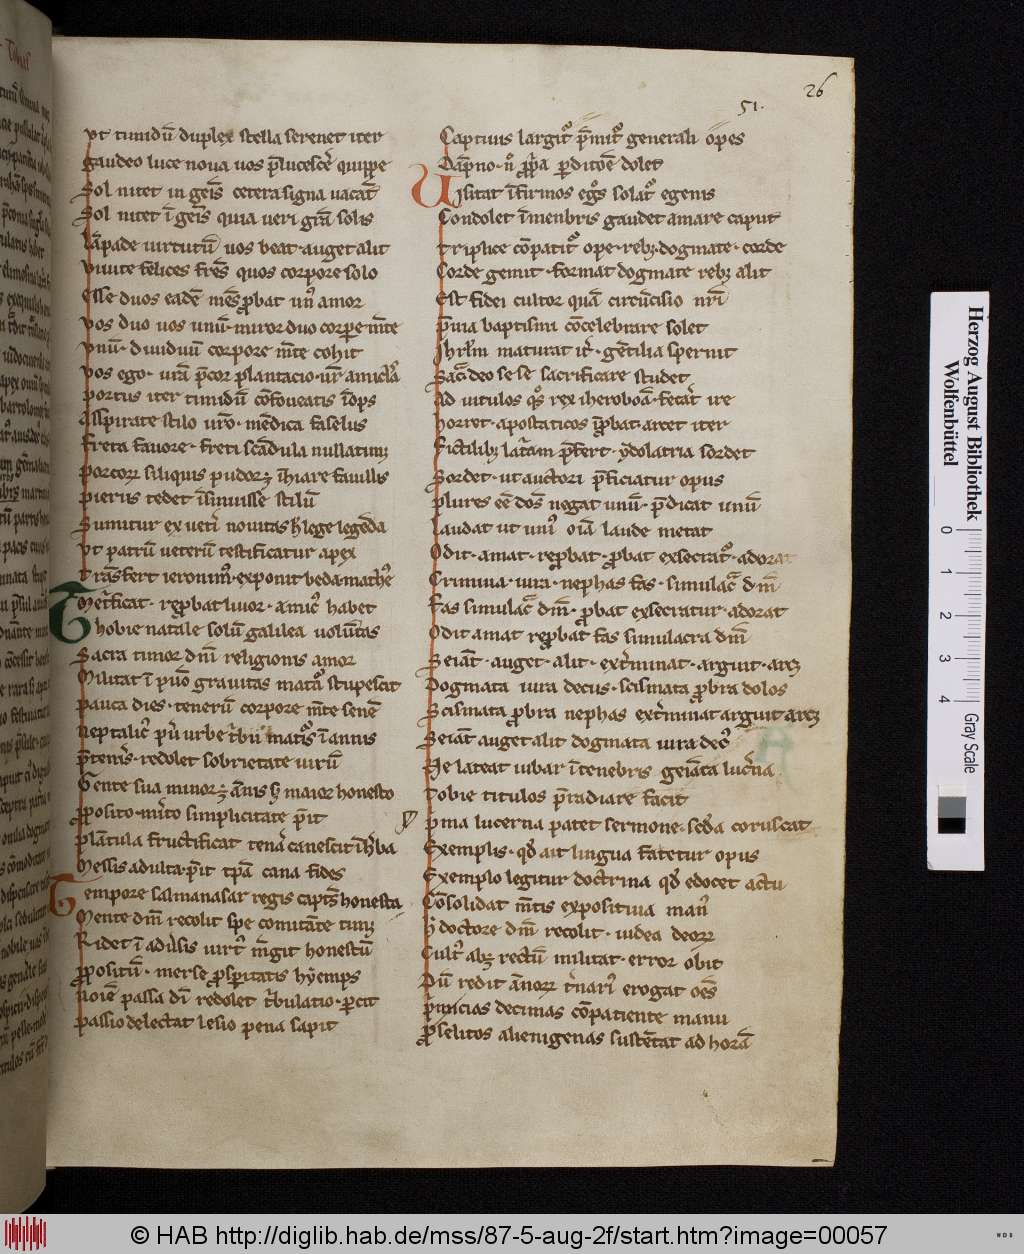 26
51.
Vt timidū duplex stella serenet iter
Gaudeo luce noua uos p̄lucescer̄ quippe
Sol nitet in geīs cetera signa uacāt
Sol nitet ī geīs quia ueri grā solis
Lāpade uirtutū uos beat auget alit
Viuite felices fr̄es quos corpore solo
Esse duos eadē mēs probat un' amor
Vos duo uos unū miror duo corpe m̄te
Vnū diuiduū corpore m̄te cohit
Vos ego
Portus iter timidū cōfoueatis
Asspirate stilo ur̄o mēdica faselus
Freta fauore freti scādula nulla tim;
Porcor siliquis pudor; īhiare fauillis
Pieriis tedet īsinuisse stilū
Sumitur ex uet'i nouitas lege legēda
Vt patrū ueterū testificatur apex
Trāsfert ieronim' exponit beda math'e
Metˀficat reprobat liuor amic' habet
Thobie natale solū galilea uolūtas
Sacra timor dn̄i religionis amor
Militat ī puō grauitas stupescat
Pauca dies tenerū corpore m̄te senē
Neptalic' urbe ī annis
redolet sobrietate uirū
Gente sua minor; ānis maior honesto
Proposito m'ito simplicitate p̄it
Plātula fructificat ten'a canescit ī h'ba
Messis adulta p̄it tp̄a cana fides
Tempore salmanasar regis capt's honesta
Mente dn̄m recolit spe comitāte tim;
Ridet ī adu'sis uirt' m̄git honestū
Propositū merse prosp'itatis hyemps
Noīe passa dī redolet t'bulatio parcit
Passio delectat lesio pena sapit
Captiuis largit' p̄mit' generali opes
Dāpno propria perditōe dolet
Visitat īfirmos egōs solat' egenis
Condolet ī menbris gaudet amare caput
Triplice cōpatit' ope reb; dogmate corde
Corde gemit format dogmate reb; alit
Est fidei cultor quā circūcisio nr̄i
P̄mia baptismi cōcelebrare solet
Ihrlm̄ maturat it' gētilia spernit
Sac̄ deo se se sacrificare studet
Ad uitulos q°s rex iheroboā fecat ire
Horret apostaticos īprobat arcet iter
Fictilib; lat'am p̄fert ydolatria sordet
Sordet ut auctori p̄ficiatur opus
Plures eē deos negat unū p̄dicat unū
Laudat ut uni' oīa laude metat
Odit amat reprobat probat exsecrat' adorat
Crimina iura nephas fas simulac̄ dn̄m
Fas simulac̄ dn̄m probat exsecratur adorat
Odit amat reprobat fas simulacra dn̄m
Seiāt auget alit ext'minat arguit arc;
Dogmata iura decus scismata probra dolos
Scismata probra nephas ext'minat arguit arc;
Seiāt auget alit dogmata iura dec'
Ne lateat iubar ī tenebris geīata luc'na
Tobie titulos p̄radiare facit
P'ma lucerna patet sermone sec̄da coruscat
Exemplis qd̄ ait lingua fatetur opus
Exemplo legitur doctrina qd̄ edocet actu
Cōsolidat m̄tis expositiua man'
doctore dn̄m recolit iudea deor
Cult' absq; rectū militat error obit
Dū redit ānor t'nari' erogat oēs
P'micias decimas cōpatiente manu
Proselitos alienigenas sustētat ad horā
Herzog August Bibliothek
Wolfenbüttel
0 1 2 3 4
Gray Scale
© HAB http://diglib.hab.de/mss/87-5-aug-2f/start.htm?image=00057